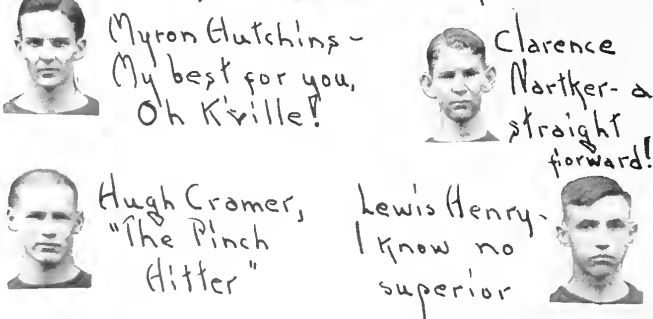 Myron Hutchins -
My best for you,
Oh K'ville!
Clarence
Nartker- a
straight
forward!
Hugh Cramer,
"The Pinch
Hitter"
Lewis Henry-
I know no
superior